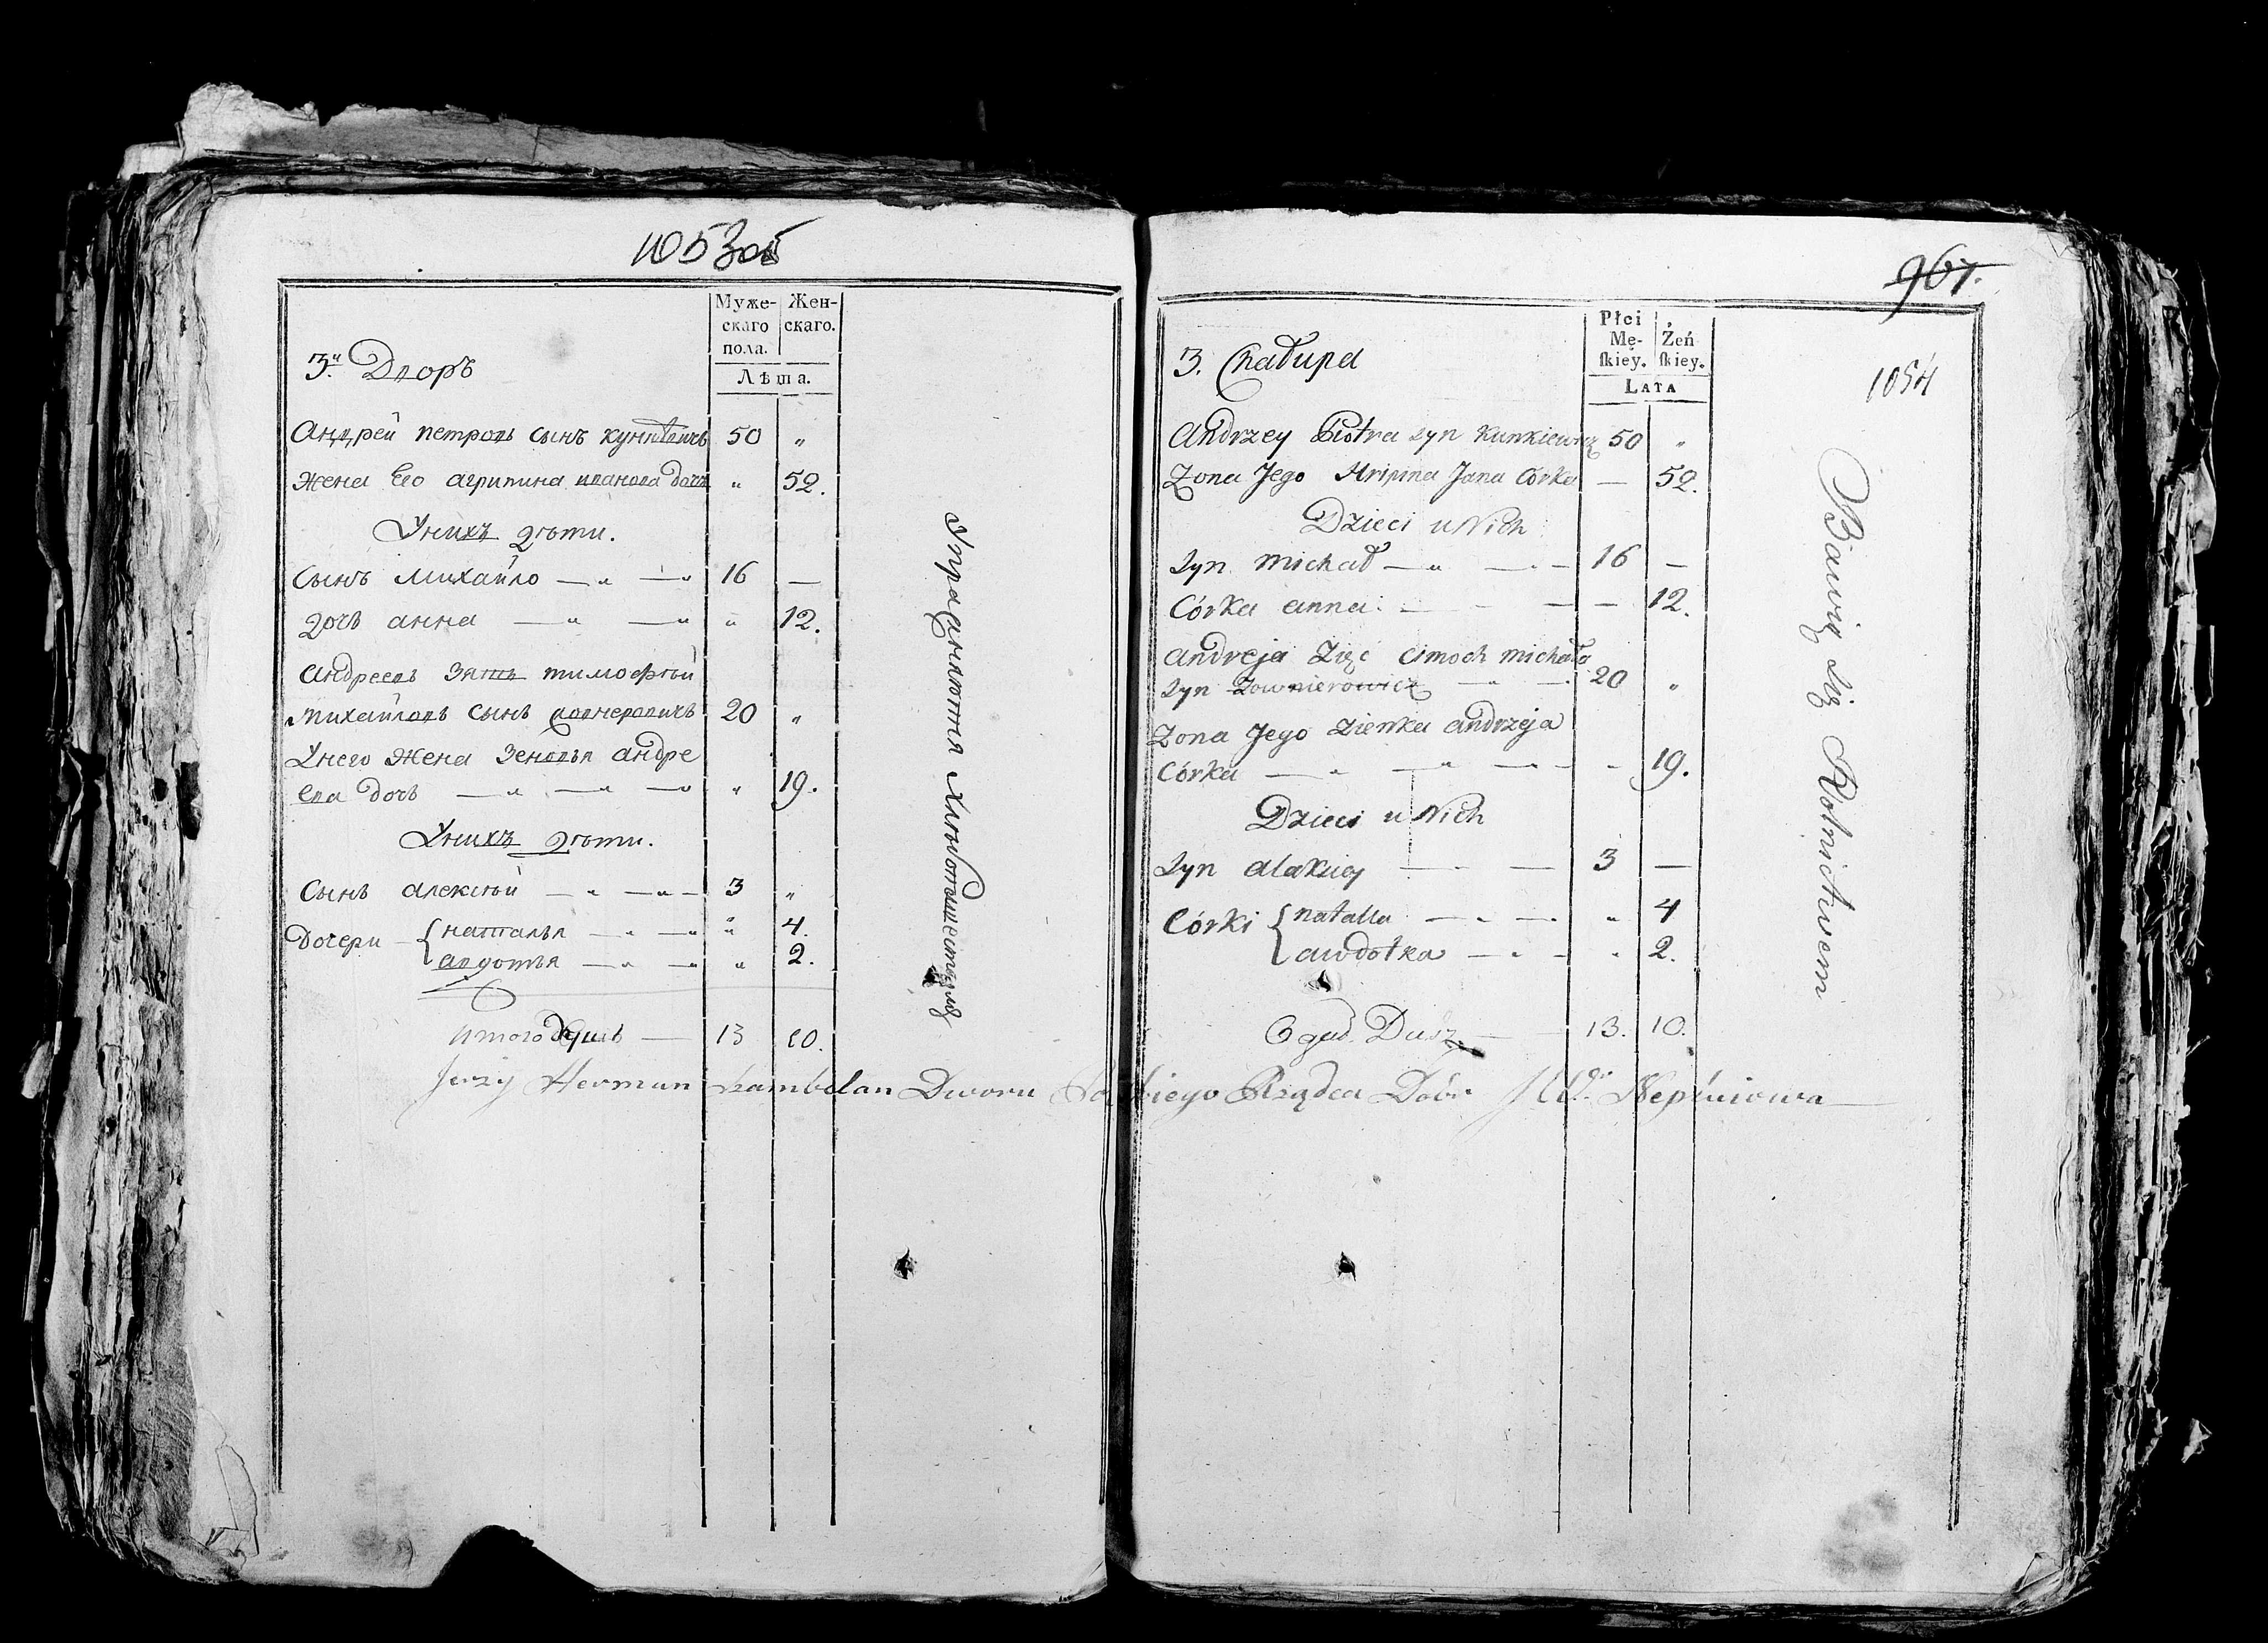 1053об
Муже-
скаго
пола.
Жен-
скаго.
Лѣта.
3й Дворъ
Андрей петровъ сынъ кункевичъ 50 "
Жена Его агрипина иванова дочь " 52.
Унихъ дѣти.
Сынъ Михайло — " — " 16 —
дочь анна — " — " " 12.
андреевъ зять тимофѣй
Михайловъ сынъ 20 "
Унего Жена Зеновья андре
ева дочь — " — " — " " 19.
Унихъ дѣти.
Сынъ алексѣй — " — " — 3 "
Дочери { наталья — " — " " 4.
авдотья — " — " " 2.
итого душъ — 13 10.
Упражняются Хлебопашествомъ
Jerzy Herman Szambelan Dworu Polskiego Rządca Dóbr
967.
1054
Płci
Mę-
ſkiey.
Żeń
ſkiey.
LATA
3. Chałupa
Andrzey Piotra syn Kunkiewicz 50 "
Zona Jego Hripina Jana Córka — 52.
Dzieci u Nich
Syn Michał — " — - 16 —
Córka anna — - — — 12.
Andreja Zięć Cimoch Michała
Syn Zownierowicz — " — 20 "
Zona Jego Zienka andrzeja
Córka — " — " — " — - 19.
Dzieci u Nich
Syn alaxiey — - — 3 —
Córki { natalla — - — " 4
awdotka — - — " 2.
Oguł Dusz — 13. 10.
Bawią się Rolnictwem